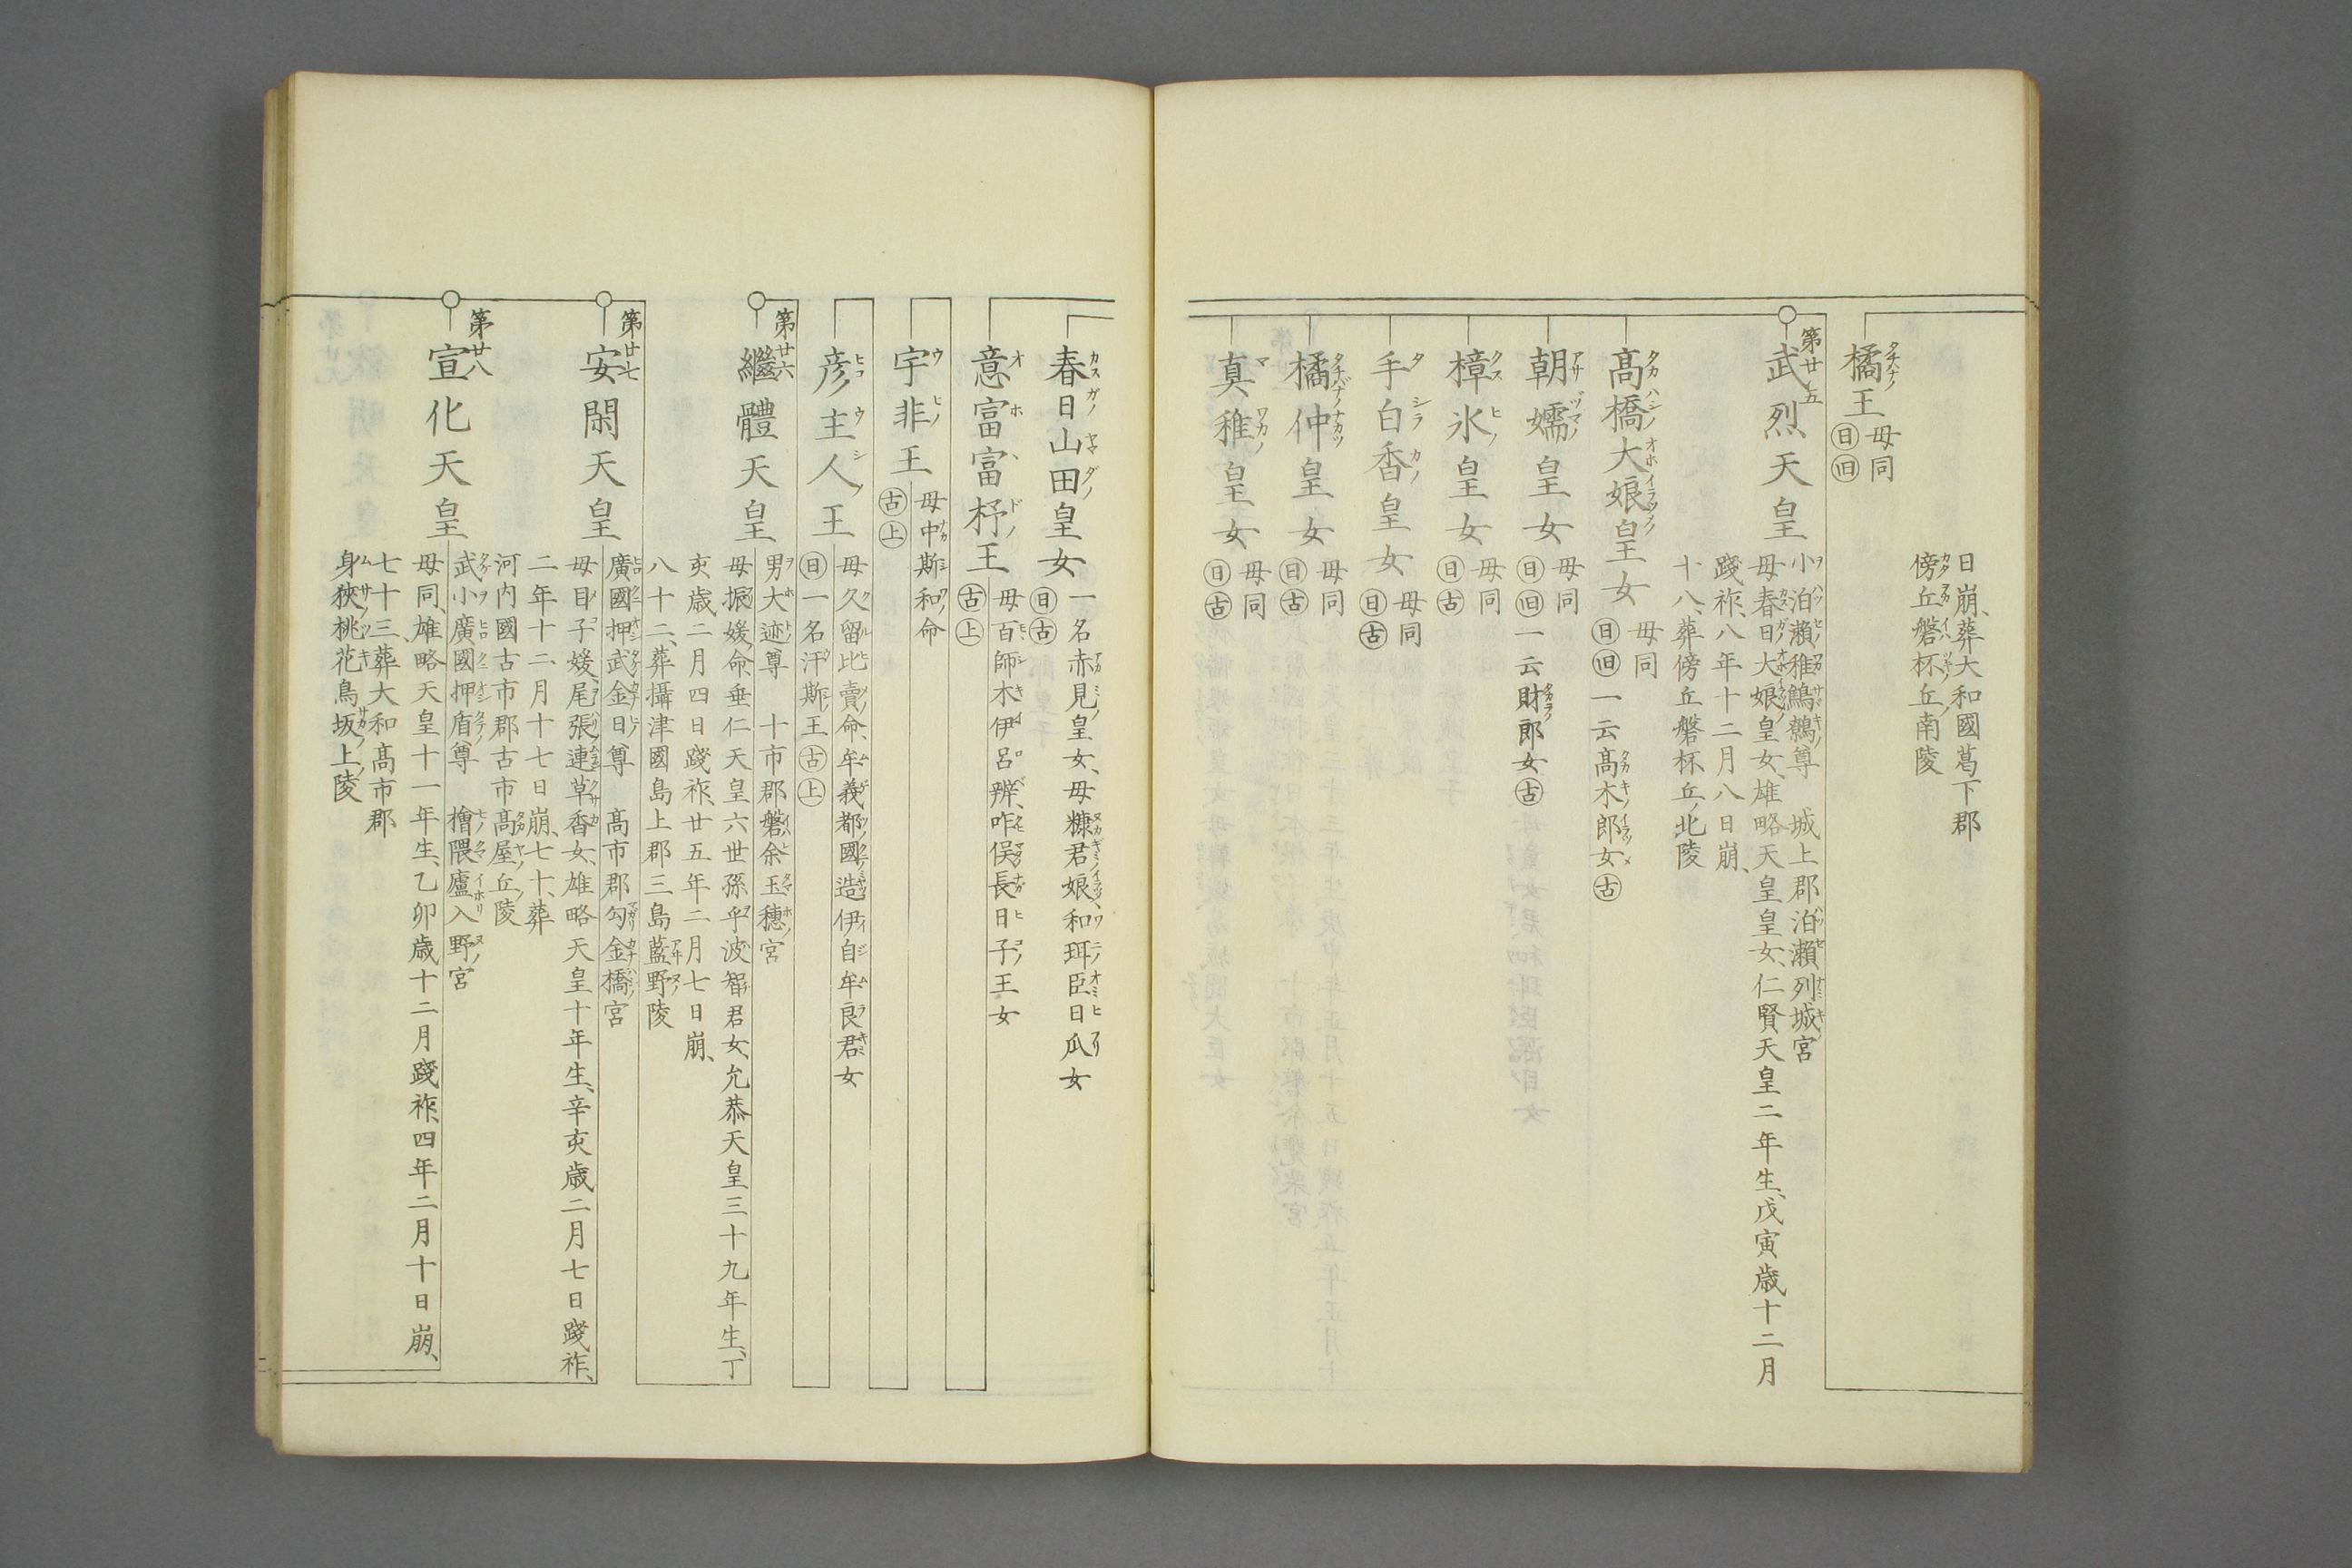 日崩、葬大和國葛下郡
傍丘磐杯丘南陵
橘王 母同 日 旧
第廿五
武烈天皇
小泊瀨稚鷦鷯尊 城上郡泊瀨列城宮
母春日大娘皇女、雄略天皇皇女、仁賢天皇二年生、戊寅歳十二月
踐祚、八年十二月八日崩、
十八、葬傍丘磐杯丘北陵
髙橋大娘皇女 母同 日 旧 一云髙木郎女 古
朝嬬皇女 母同 日 旧 一云財郎女 古
樟氷皇女 母同 日 古
手白香皇女 母同 日 古
橘仲皇女 母同 日 古
真稚皇女 母同 日 古
春日山田皇女 日 古 一名赤見皇女、母糠君娘、和珥臣日爪女
意富富杼王 古 上 母百師木伊呂辨、咋俣長日子王女
宇非王 古 上 母中斯和命
彦主人王
母久留比賣命、牟義都國造伊自牟良君女
日 一名汗斯王 古 上
第廿六
繼體天皇
男大迹尊 十市郡磐余玉穂宮
母振媛命、垂仁天皇六世孫乎波智君女、允恭天皇三十九年生、丁
亥歳二月四日踐祚、廿五年二月七日崩、
八十二、葬攝津國島上郡三島藍野陵
第廿七
安閑天皇
廣國押武金日尊 髙市郡勾金橋宮
母目子媛、尾張連草香女、雄略天皇十年生、辛亥歳二月七日踐祚、
二年十二月十七日崩、七十、葬
河内國古市郡古市髙屋丘陵
第廿八
宣化天皇
武小廣國押盾尊 檜隈廬入野宮
母同、雄略天皇十一年生、乙卯歳十二月踐祚、四年二月十日崩、
七十三、葬大和髙市郡
身狹桃花鳥坂上陵